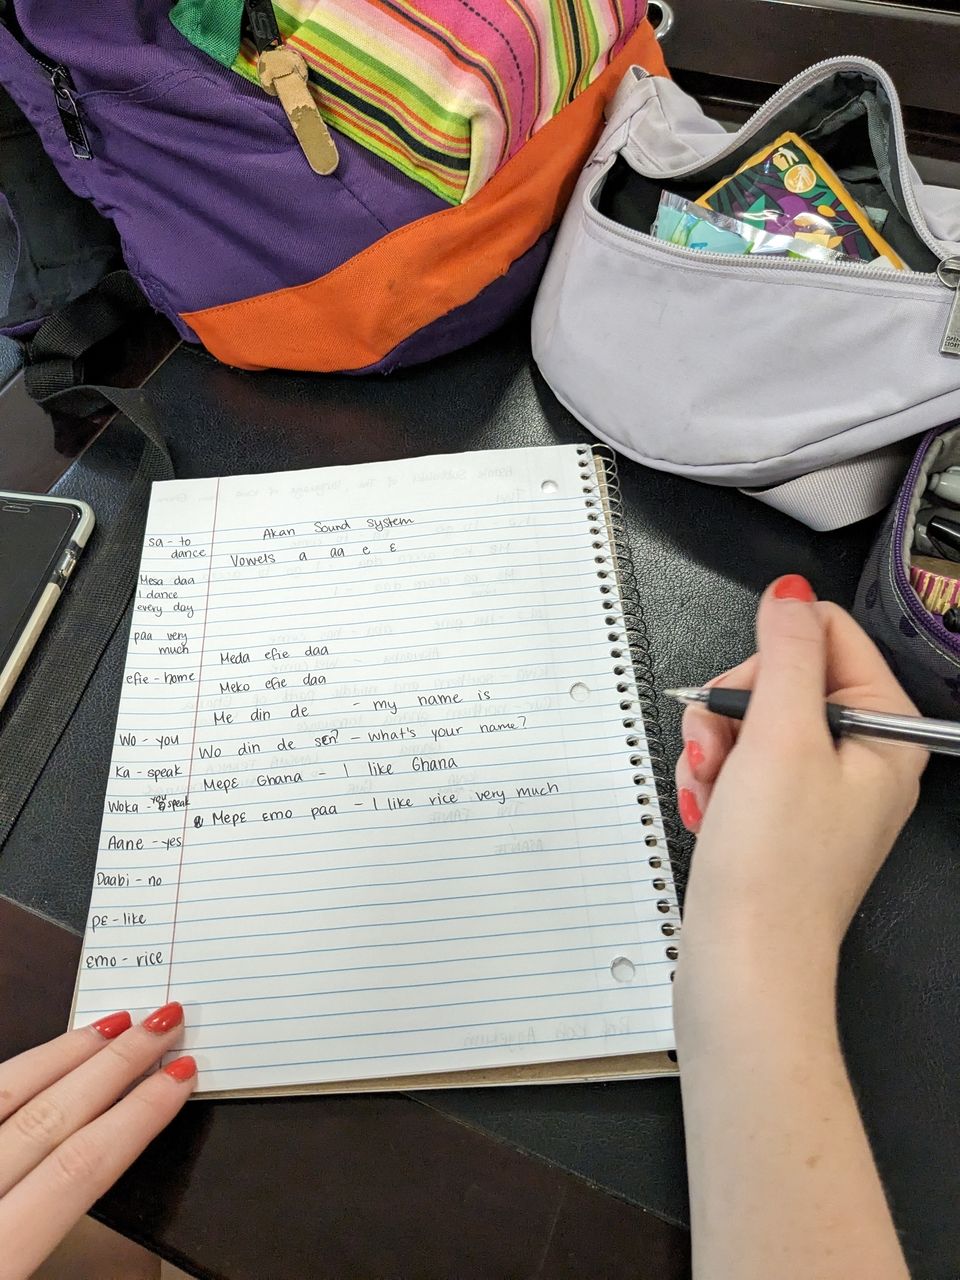 Akan Sound System
sa - to
dance
Vowels a aa e ɛ
Mesa daa
I dance
every day
paa very
much
Meda efie daa
efie - home
Meko efie daa
Me din de - my name is
Wo - you
Wo din de sɛn? - What's your name?
Ka - speak
Mepɛ Ghana - I like Ghana
Woka - you speak
Mepɛ ɛmo paa - I like rice very much
Aane - yes
Daabi - no
pɛ - like
ɛmo - rice